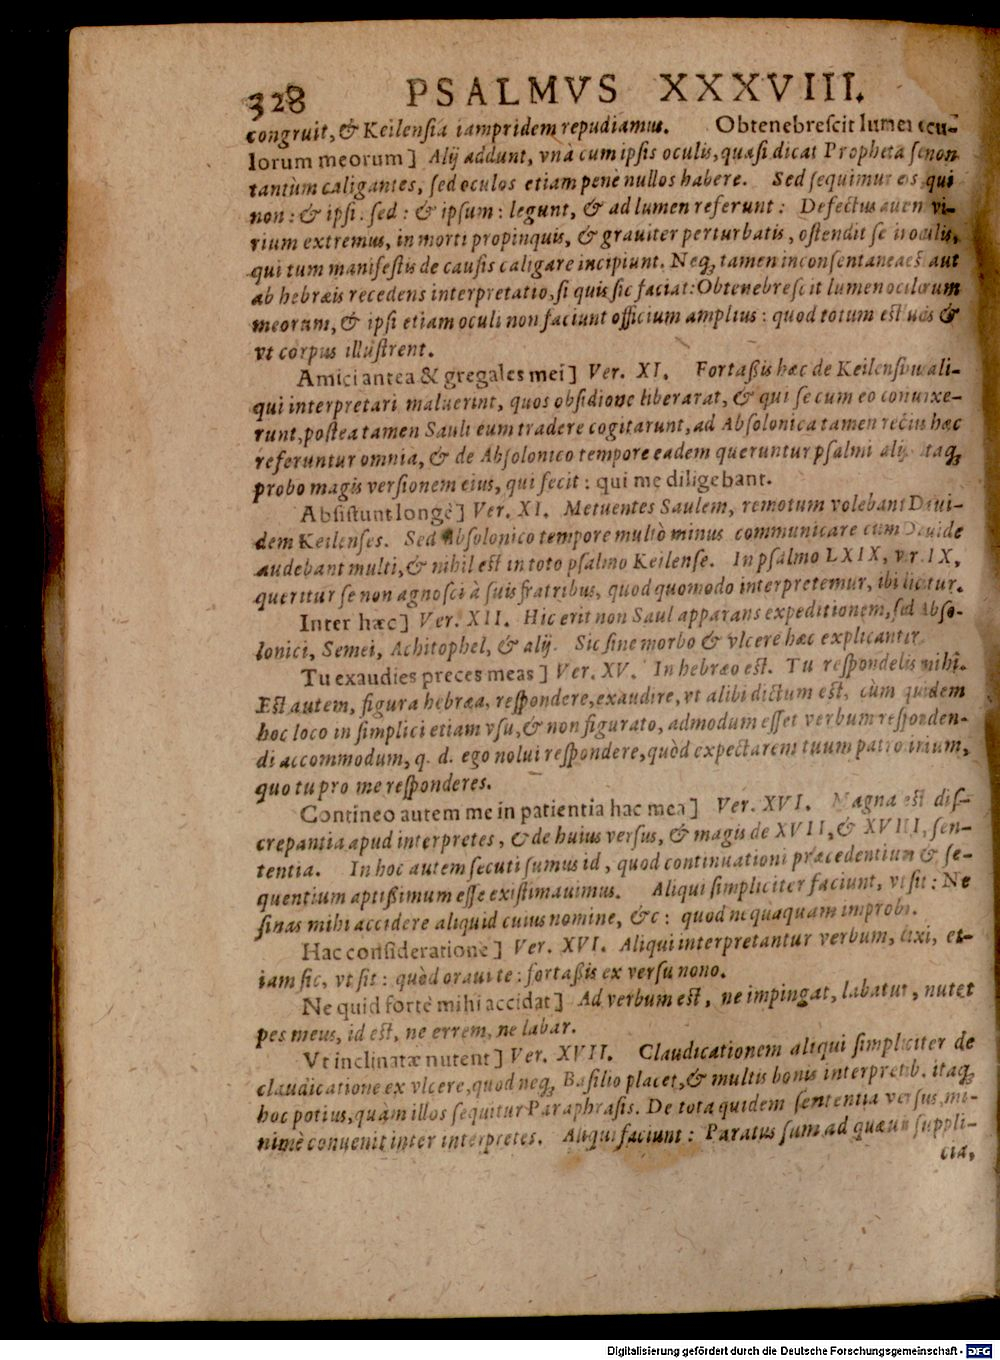 328 PSALMVS XXXVIII.
congruit, & Keilensia iampridem repudiamus. Obtenebrescit lumen ocu-
lorum meorum] Alij addunt, vnà cum ipsis oculis, quasi dicat Propheta se non
tantùm caligantes, sed oculos etiam penè nullos habere. Sed sequimur eos, qui
non: & ipsi. sed: & ipsum: legunt, & ad lumen referunt: Defectus autem vi-
rium extremus, in morti propinquis, & grauiter perturbatis, ostendit se in oculis,
qui tum manifestis de causis caligare incipiunt. Neq; tamen inconsentanea est aut
ab hebræis recedens interpretatio, si quis sic faciat: Obtenebrescit lumen oculorum
meorum, & ipsi etiam oculi non faciunt officium amplius: quod totum est &
vt corpus illustrent.
Amici antea & gregales mei] Ver. XI. Fortaßis hæc de Keilensibus ali-
qui interpretari maluerint, quos obsidione liberarat, & qui se cum eo coniunxe-
runt, postea tamen Sauli eum tradere cogitarunt, ad Absolonica tamen rectiùs hæc
referuntur omnia, & de Absolonico tempore eadem queruntur psalmi alij. itaq;
probo magis versionem eius, qui fecit: qui me diligebant.
Absistunt longè] Ver. XI. Metuentes Saulem, remotum volebant Daui-
dem Keilenses. Sed Absolonico tempore multò minus communicare cum Dauide
audebant multi, & nihil est in toto psalmo Keilense. In psalmo LXIX, ver. IX,
queritur se non agnosci à suis fratribus, quod quomodo interpretemur, ibi dicetur.
Inter hæc] Ver. XII. Hic erit non Saul apparans expeditionem, sed Abso-
lonici, Semei, Achitophel, & alij. Sic sine morbo & vlcere hæc explicantur.
Tu exaudies preces meas] Ver. XV. In hebræo est. Tu respondebis mihi.
Est autem, figura hebræa, respondere, exaudire, vt alibi dictum est, cùm quidem
hoc loco in simplici etiam vsu, & non figurato, admodum esset verbum responden-
di accommodum, q. d. ego nolui respondere, quòd expectarem tuum patrocinium,
quo tu pro me responderes.
Contineo autem me in patientia hac mea] Ver. XVI. Magna est dis-
crepantia apud interpretes, & de huius versus, & magis de XVII, & XVIII, sen-
tentia. In hoc autem secuti sumus id, quod continuationi præcedentium & se-
quentium aptißimum esse existimauimus. Aliqui simpliciter faciunt, vt sit: Ne
sinas mihi accidere aliquid cuius nomine, &c: quod nequaquam improbo.
Hac consideratione] Ver. XVI. Aliqui interpretantur verbum, dixi, et-
iam sic, vt sit: quòd oraui te: fortaßis ex versu nono.
Ne quid fortè mihi accidat] Ad verbum est, ne impingat, labatur, nutet
pes meus, id est, ne errem, ne labar.
Vt inclinatæ nutent] Ver. XVII. Claudicationem aliqui simpliciter de
claudicatione ex vlcere, quod neq; Basilio placet, & multis bonis interpretib. itaq;
hoc potius, quàm illos sequitur Paraphrasis. De tota quidem sententia versus, mi-
nimè conuenit inter interpretes. Aliqui faciunt: Paratus sum ad quæuis suppli-
cia,
Digitalisierung gefördert durch die Deutsche Forschungsgemeinschaft - DFG